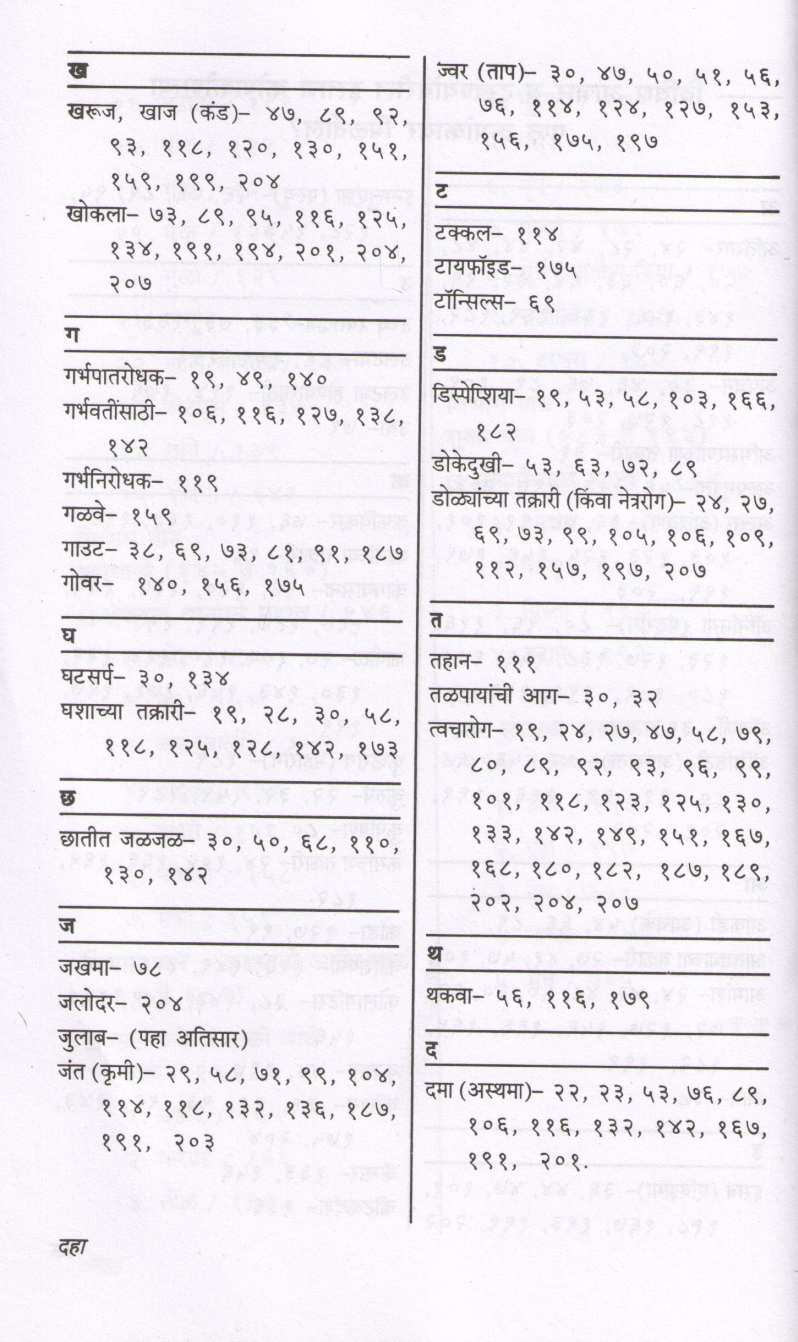 ख
खरूज, खाज (कंड)– ४७, ८९, ९२,
९३, ११८, १२०, १३०, १५१,
१५९, १९९, २०४
खोकला– ७३, ८९, ९५, ११६, १२५,
१३४, १९१, १९४, २०१, २०४,
२०७
ग
गर्भपातरोधक– १९, ४९, १४०
गर्भवतीसाठी– १०६, ११६, १२७, १३८,
१४२
गर्भनिरोधक– ११९
गळवे– १५९
गाउट– ३८, ६९, ७३, ८१, ९१, १८७
गोवर– १४०, १५६, १७५
घ
घटसर्प– ३०, १३४
घशाच्या तक्रारी– १९, २८, ३०, ५८,
११८, १२५, १२८, १४२, १७३
छ
छातीत जळजळ– ३०, ५०, ६८, ११०,
१३०, १४२
ज
जखमा– ७८
जलोदर– २०४
जुलाब– (पहा अतिसार)
जंत (कृमी)– २९, ५८, ७१, ९९, १०४,
११४, ११८, १३२, १३६, १८७,
१९१, २०३
ज्वर (ताप)– ३०, ४७, ५०, ५१, ५६,
७६, ११४, १२४, १२७, १५३,
१५६, १७५, १९७
ट
टक्कल– ११४
टायफॉइड– १७५
टॉन्सिल्स– ६९
ड
डिस्पेप्शिया– १९, ५३, ५८, १०३, १६६,
१८२
डोकेदुखी– ५३, ६३, ७२, ८९
डोळ्यांच्या तक्रारी (किंवा नेत्ररोग)– २४, २७,
६९, ७३, ९९, १०५, १०६, १०९,
११२, १५७, १९७, २०७
त
तहान– १११
तळपायांची आग– ३०, ३२
त्वचारोग– १९, २४, २७, ४७, ५८, ७९,
८०, ८९, ९२, ९३, ९६, ९९,
१०१, ११८, १२३, १२५, १३०,
१३३, १४२, १४९, १५१, १६७,
१६८, १८०, १८२, १८७, १८९,
२०२, २०४, २०७
थ
थकवा– ५६, ११६, १७९
द
दमा (अस्थमा)– २२, २३, ५३, ७६, ८९,
१०६, ११६, १३२, १४२, १६७,
१९१, २०१.
दहा